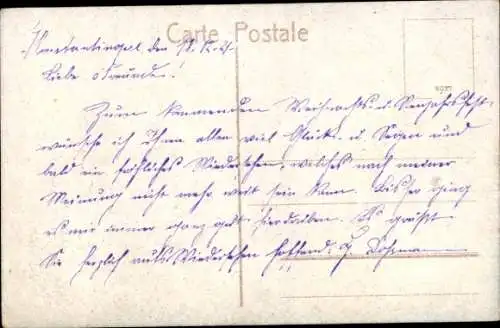 Carte Postale
Konstantinopel, den 12.12.21
Liebe Freunde!
Zum kommenden Weihnachts- u. Neujahrsfest
wünsche ich Ihnen allen viel Glück u. Segen und
bald ein fröhliches Wiedersehen, welches nach meiner
Meinung nicht mehr weit sein kann. Bisher ging
es mir immer ganz gut hierdrüben. Es grüßt
Sie herzlich aufs Wiedersehen hoffend